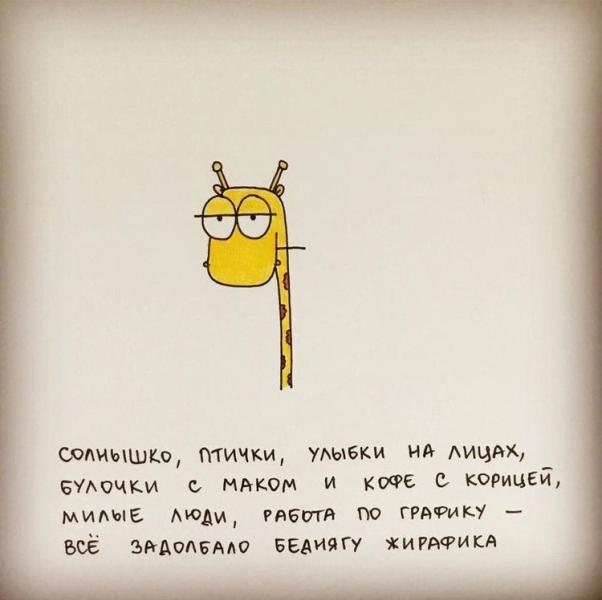 СОЛНЫШКО, ПТИЧКИ, УЛЫБКИ НА ЛИЦАХ,
БУЛОЧКИ С МАКОМ И КОФЕ С КОРИЦЕЙ,
МИЛЫЕ ЛЮДИ, РАБОТА ПО ГРАФИКУ —
ВСЁ ЗАДОЛБАЛО БЕДНЯГУ ЖИРАФИКА